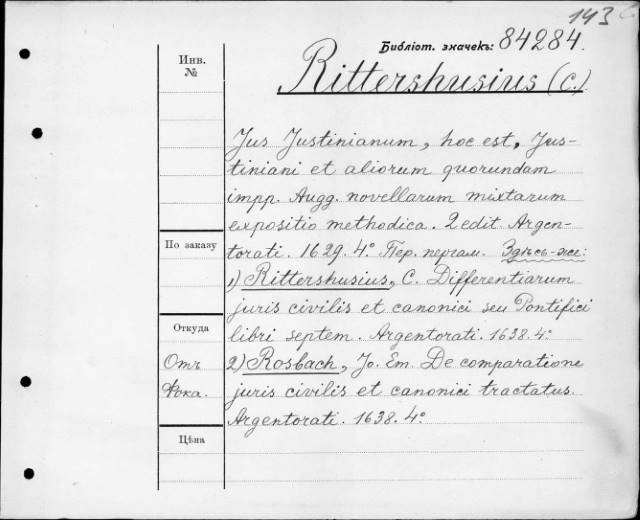 143
Библіот. значекъ: 84284.
Инв.
№
Rittershusius (C.)
Jus Justinianum, hoc est, Jus-
tiniani et aliorum quorundam
impp. Augg. novellarum mixtarum
expositio methodica. 2 edit. Argen-
По заказу
torati. 1629. 4º. Пер. пергам. Здѣсь-же:
1) Rittershusius, C. Differentiarum
juris civilis et canonici seu Pontificii
Откуда
libri septem. Argentorati. 1638. 4º.
Отъ
2) Rosbach, Jo. Em. De comparatione
Фока.
juris civilis et canonici tractatus.
Argentorati. 1638. 4º
Цѣна